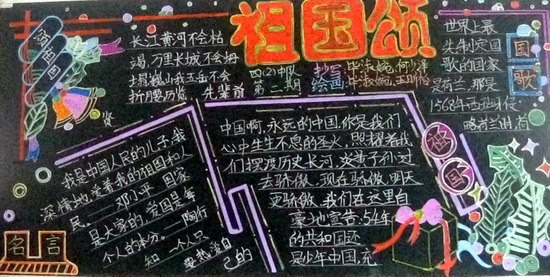 祖国颂
长江黄河不会枯
竭 万里长城不会坍
我岳不会
折腰
四(2)中队
第二期
抄写
绘画
世界上最
先制定国
歌的国家
是荷兰,那是
1568年西班牙侵
略荷兰时,荷
国歌
我是中国人民的儿子,我
深情地爱着我的祖国和人
民。——邓小平 国家
是大家的,爱国是每
个人的本分。——陶行
知 一个人只
要热爱自
己的
中国啊,永远的中国,你是我们
心中生生不息的圣火,照耀着我
们探渡历史长河,炎黄子孙过
去骄傲,现在骄傲,明天
更骄傲,我们在这里自
豪地宣誓:54年
的共和国还
是少年中国,充
祖国
名言